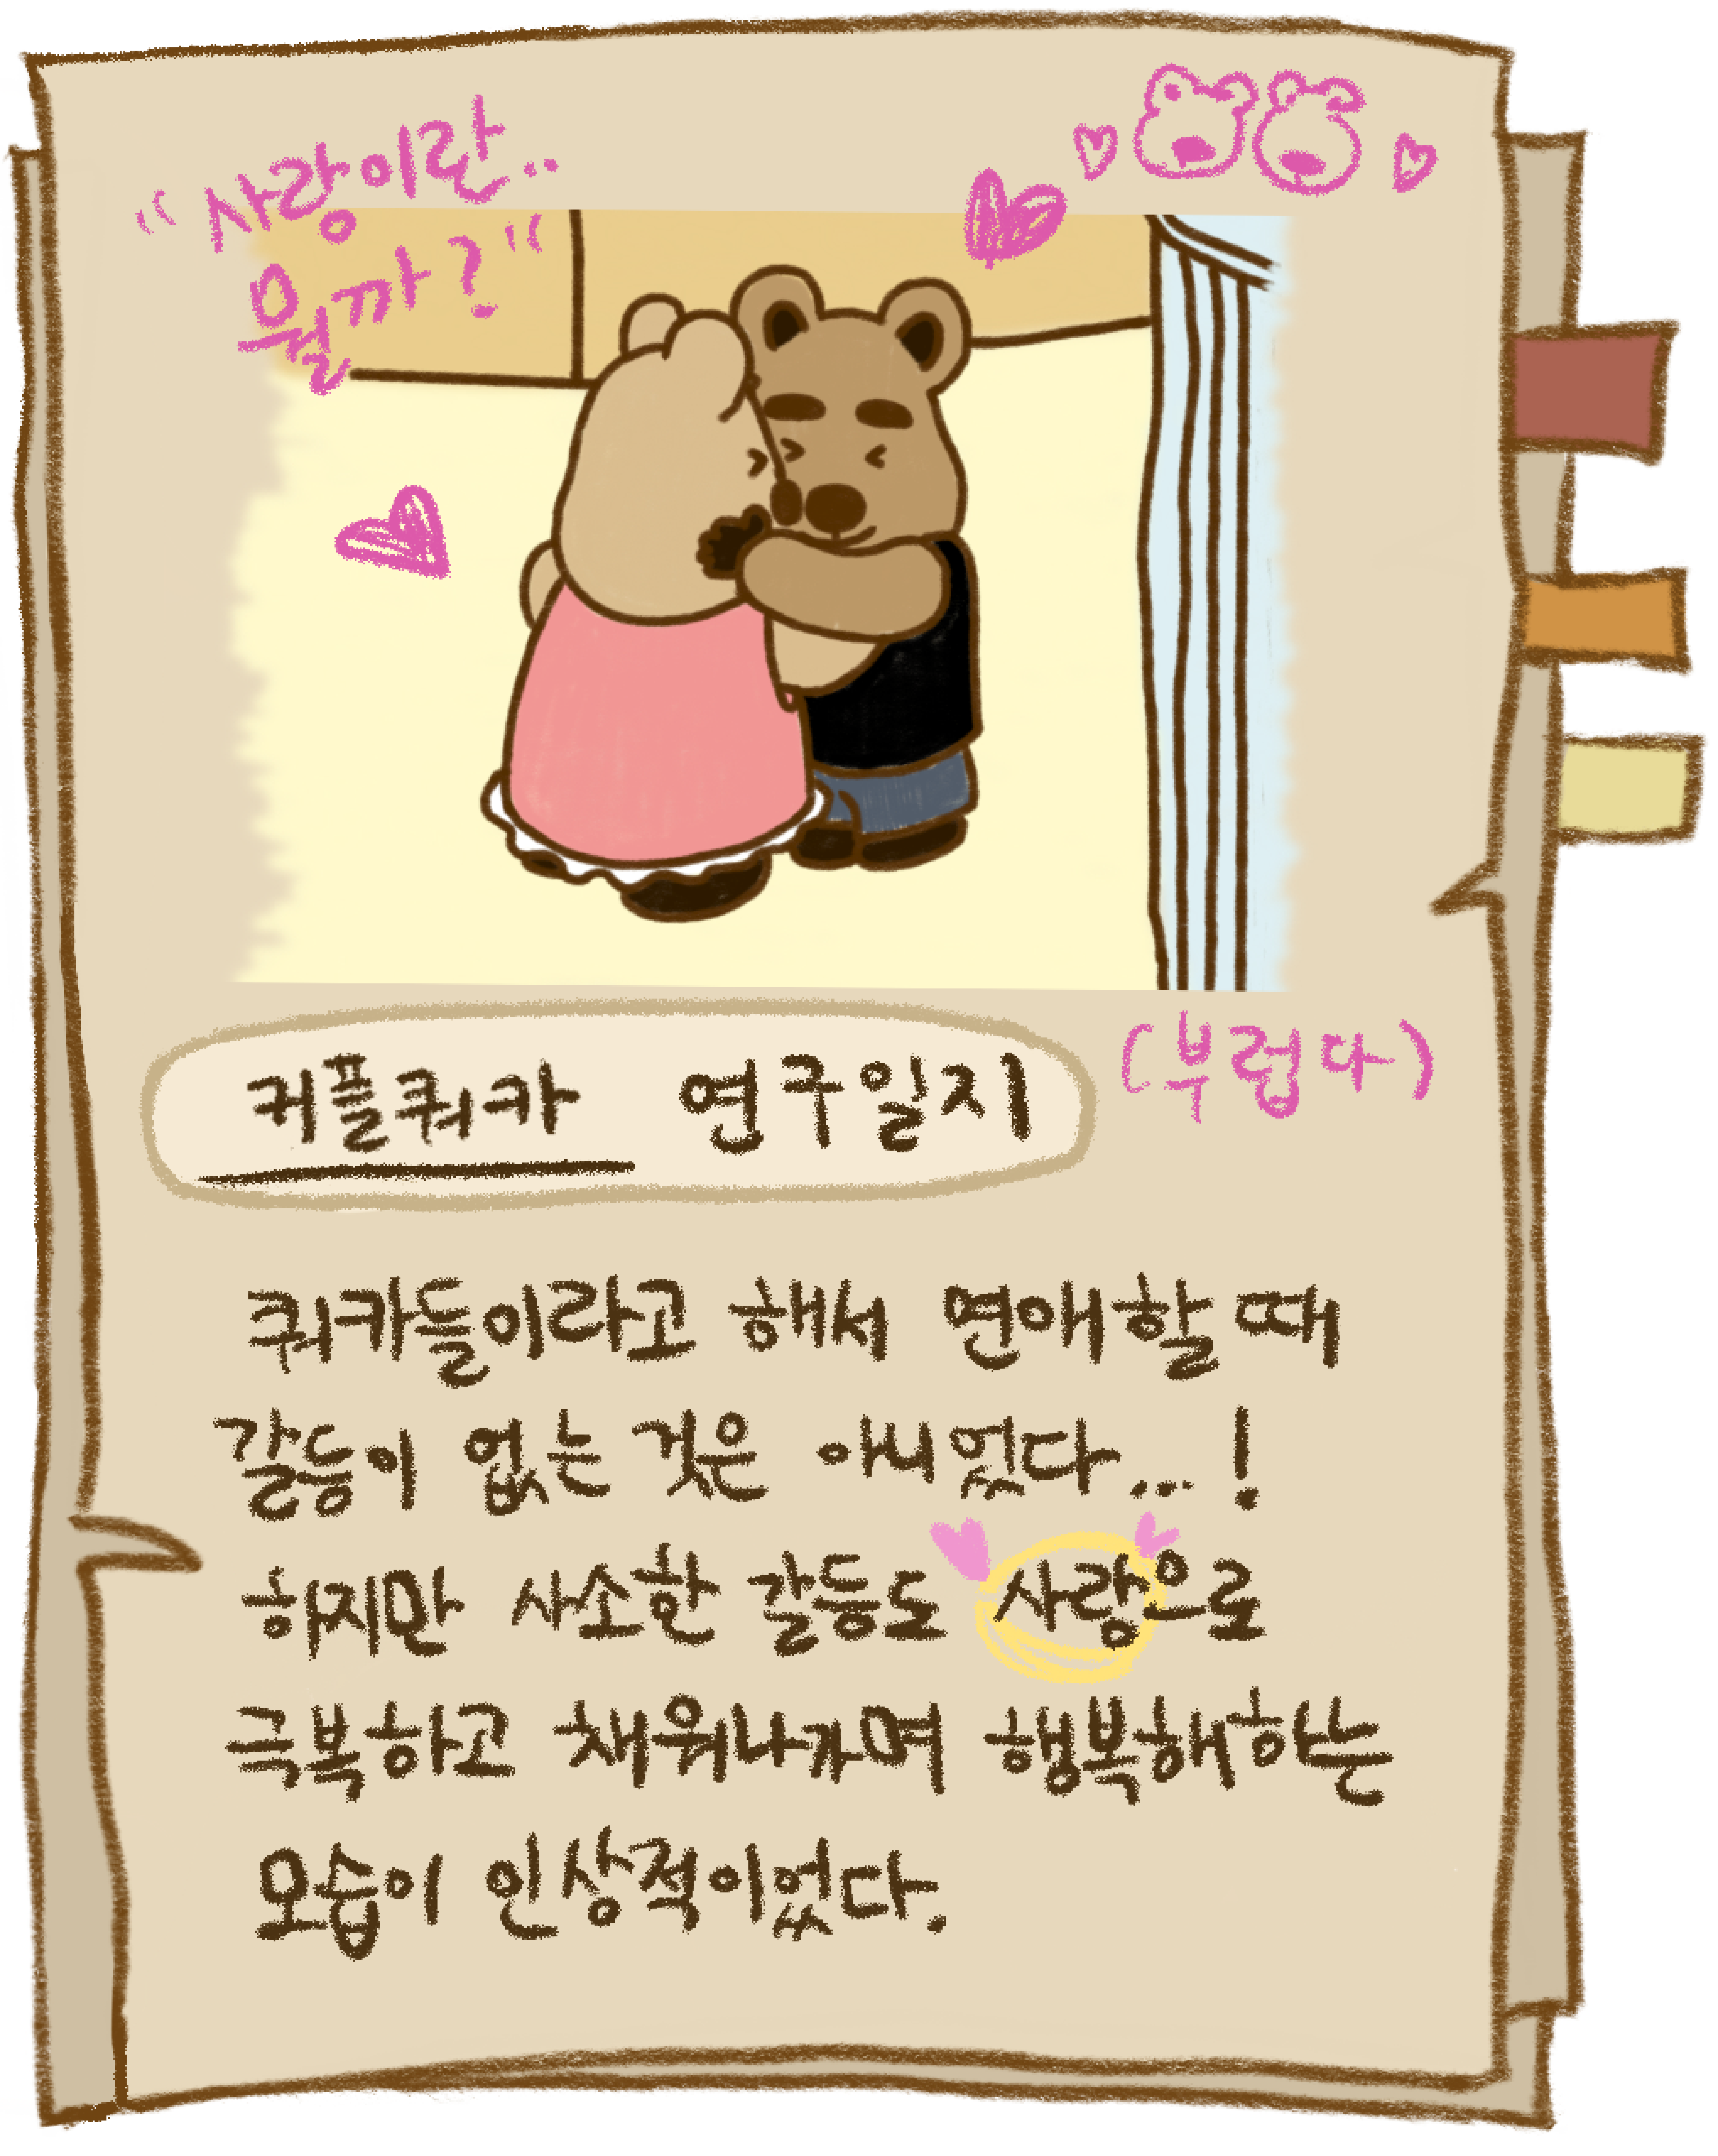 "사랑이란..
뭘까?"
커플쿼카 연구일지
(부럽다)
쿼카들이라고 해서 연애할 때
갈등이 없는 것은 아니었다...!
하지만 사소한 갈등도 사랑으로
극복하고 채워나가며 행복해하는
모습이 인상적이었다.